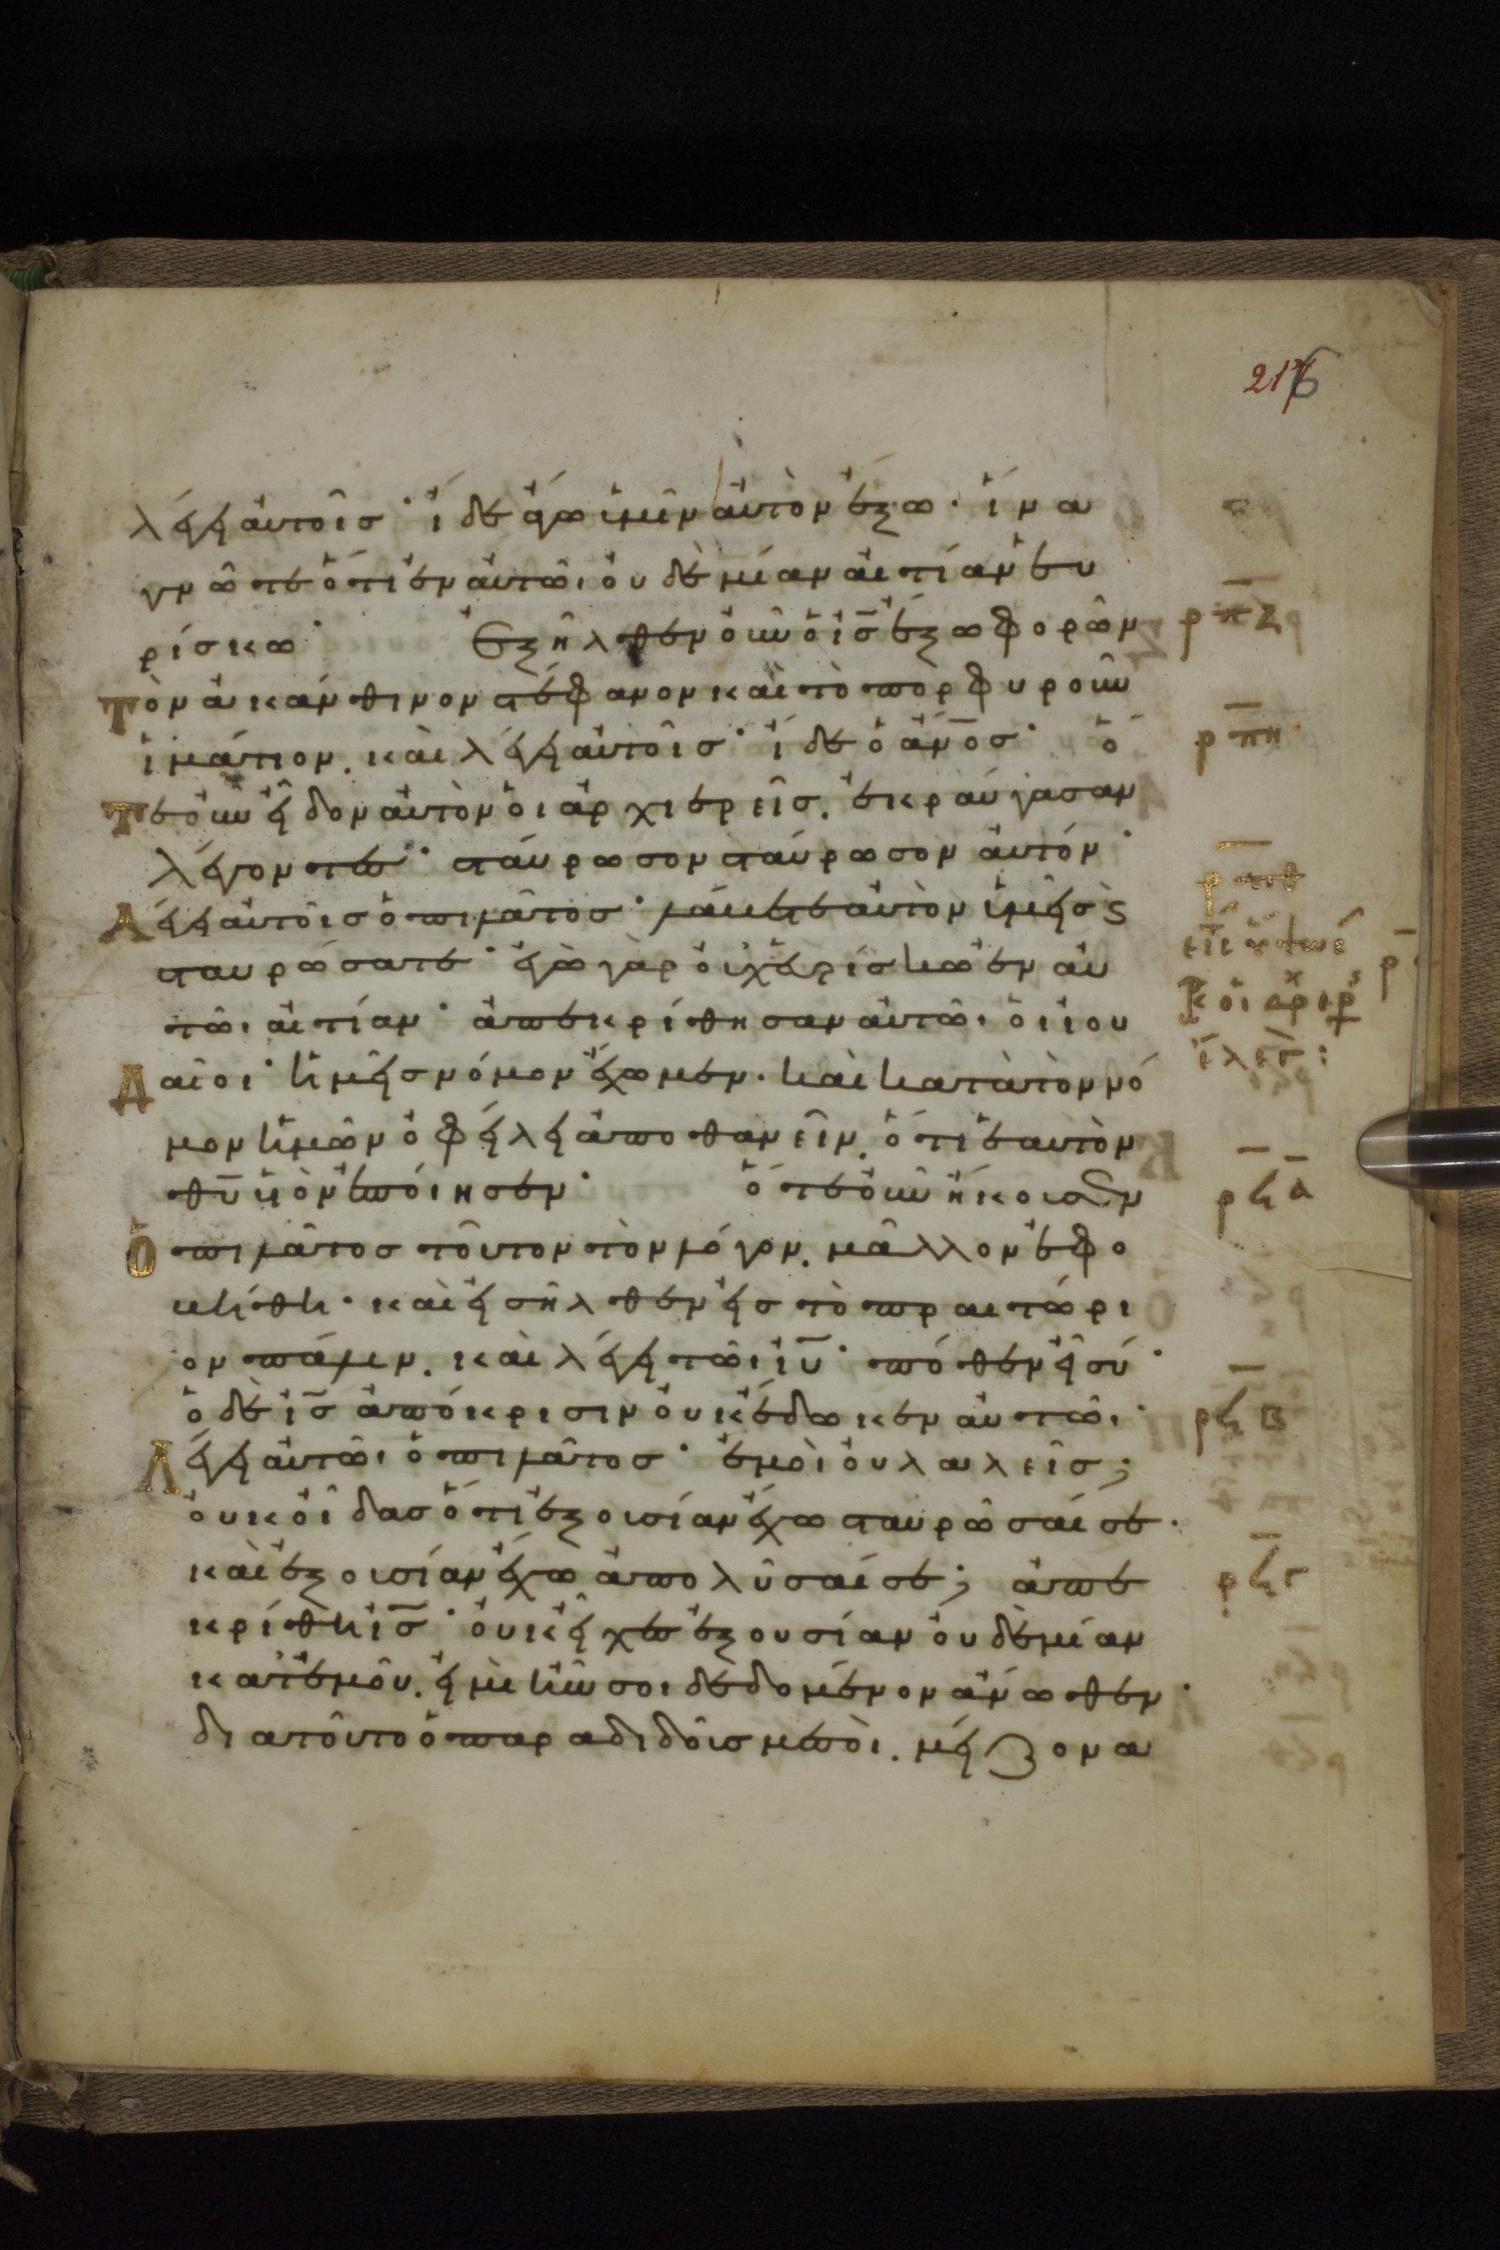 216
λέγει αὐτοῖσ· ἴδε ἄγω ὑμῖν αὐτὸν ἔξω· ἵνα
γνῶτε ὅτι ἐν αὐτῶι οὐδεμίαν αἰτίαν εὑ
ρίσκω· Ἐξῆλθεν οὖν ὁ ἰσ̅ ἔξω φορῶν ρπζ
τὸν ἀκάνθινον στέφανον καὶ τὸ πορφυροῦν
ἱμάτιον. καὶ λέγει αὐτοῖσ· ἴδε ὁ ἀν̅οσ· ὅ ρπη
τε οὖν εἶδον αὐτὸν οἱ ἀρχιερεῖσ. ἐκραύγασαν
λέγοντεσ· σταύρωσον σταύρωσον αὐτόν· ρπθ
Λέγει αὐτοῖσ ὁ πιλᾶτοσ· λάβετε αὐτὸν ὑμεῖσ ϗ
σταυρώσατε· ἐγὼ γὰρ οὐχ εὑρίσκω ἐν αὐ
τῶι αἰτίαν· ἀπεκρίθησαν αὐτῶι οἱ ἰου
Δαῖοι· ἡμεῖσ νόμον ἔχομεν. καὶ κατὰ τὸν νό
μον ἡμῶν ὀφείλει ἀποθανεῖν. ὅτι ἑαυτὸν
θυ̅ υἱὸν ἐποίησεν· ὅτε οὖν ἤκουσεν ρϟα
Ὁ πιλᾶτοσ τοῦτον τὸν λόγον. μᾶλλον ἐφο
βήθη· καὶ εἰσῆλθεν εἰσ τὸ πραιτώρι
ον πάλιν. καὶ λέγει τῶι ιυ̅· πόθεν εἶ σύ·
ὁ δὲ ἰσ̅ ἀπόκρισιν οὐκ ἔδωκεν αὐτῶι· ρϟβ
Λέγει αὐτῶι ὁ πιλᾶτοσ· ἐμοὶ οὐ λαλεῖσ;
οὐκ οἶδασ ὅτι ἐξουσίαν ἔχω σταυρῶσαί σε·
καὶ ἐξουσίαν ἔχω ἀπολῦσαί σε; ἀπε ρϟγ
κρίθη ἰσ̅· οὐκ εἶχεσ ἐξουσίαν οὐδεμίαν
κατ' ἐμοῦ. εἰ μὴ ἦν σοι δεδομένον ἄνωθεν·
διατοῦτο ὁ παραδιδοῦσ με σοὶ. μείζονα